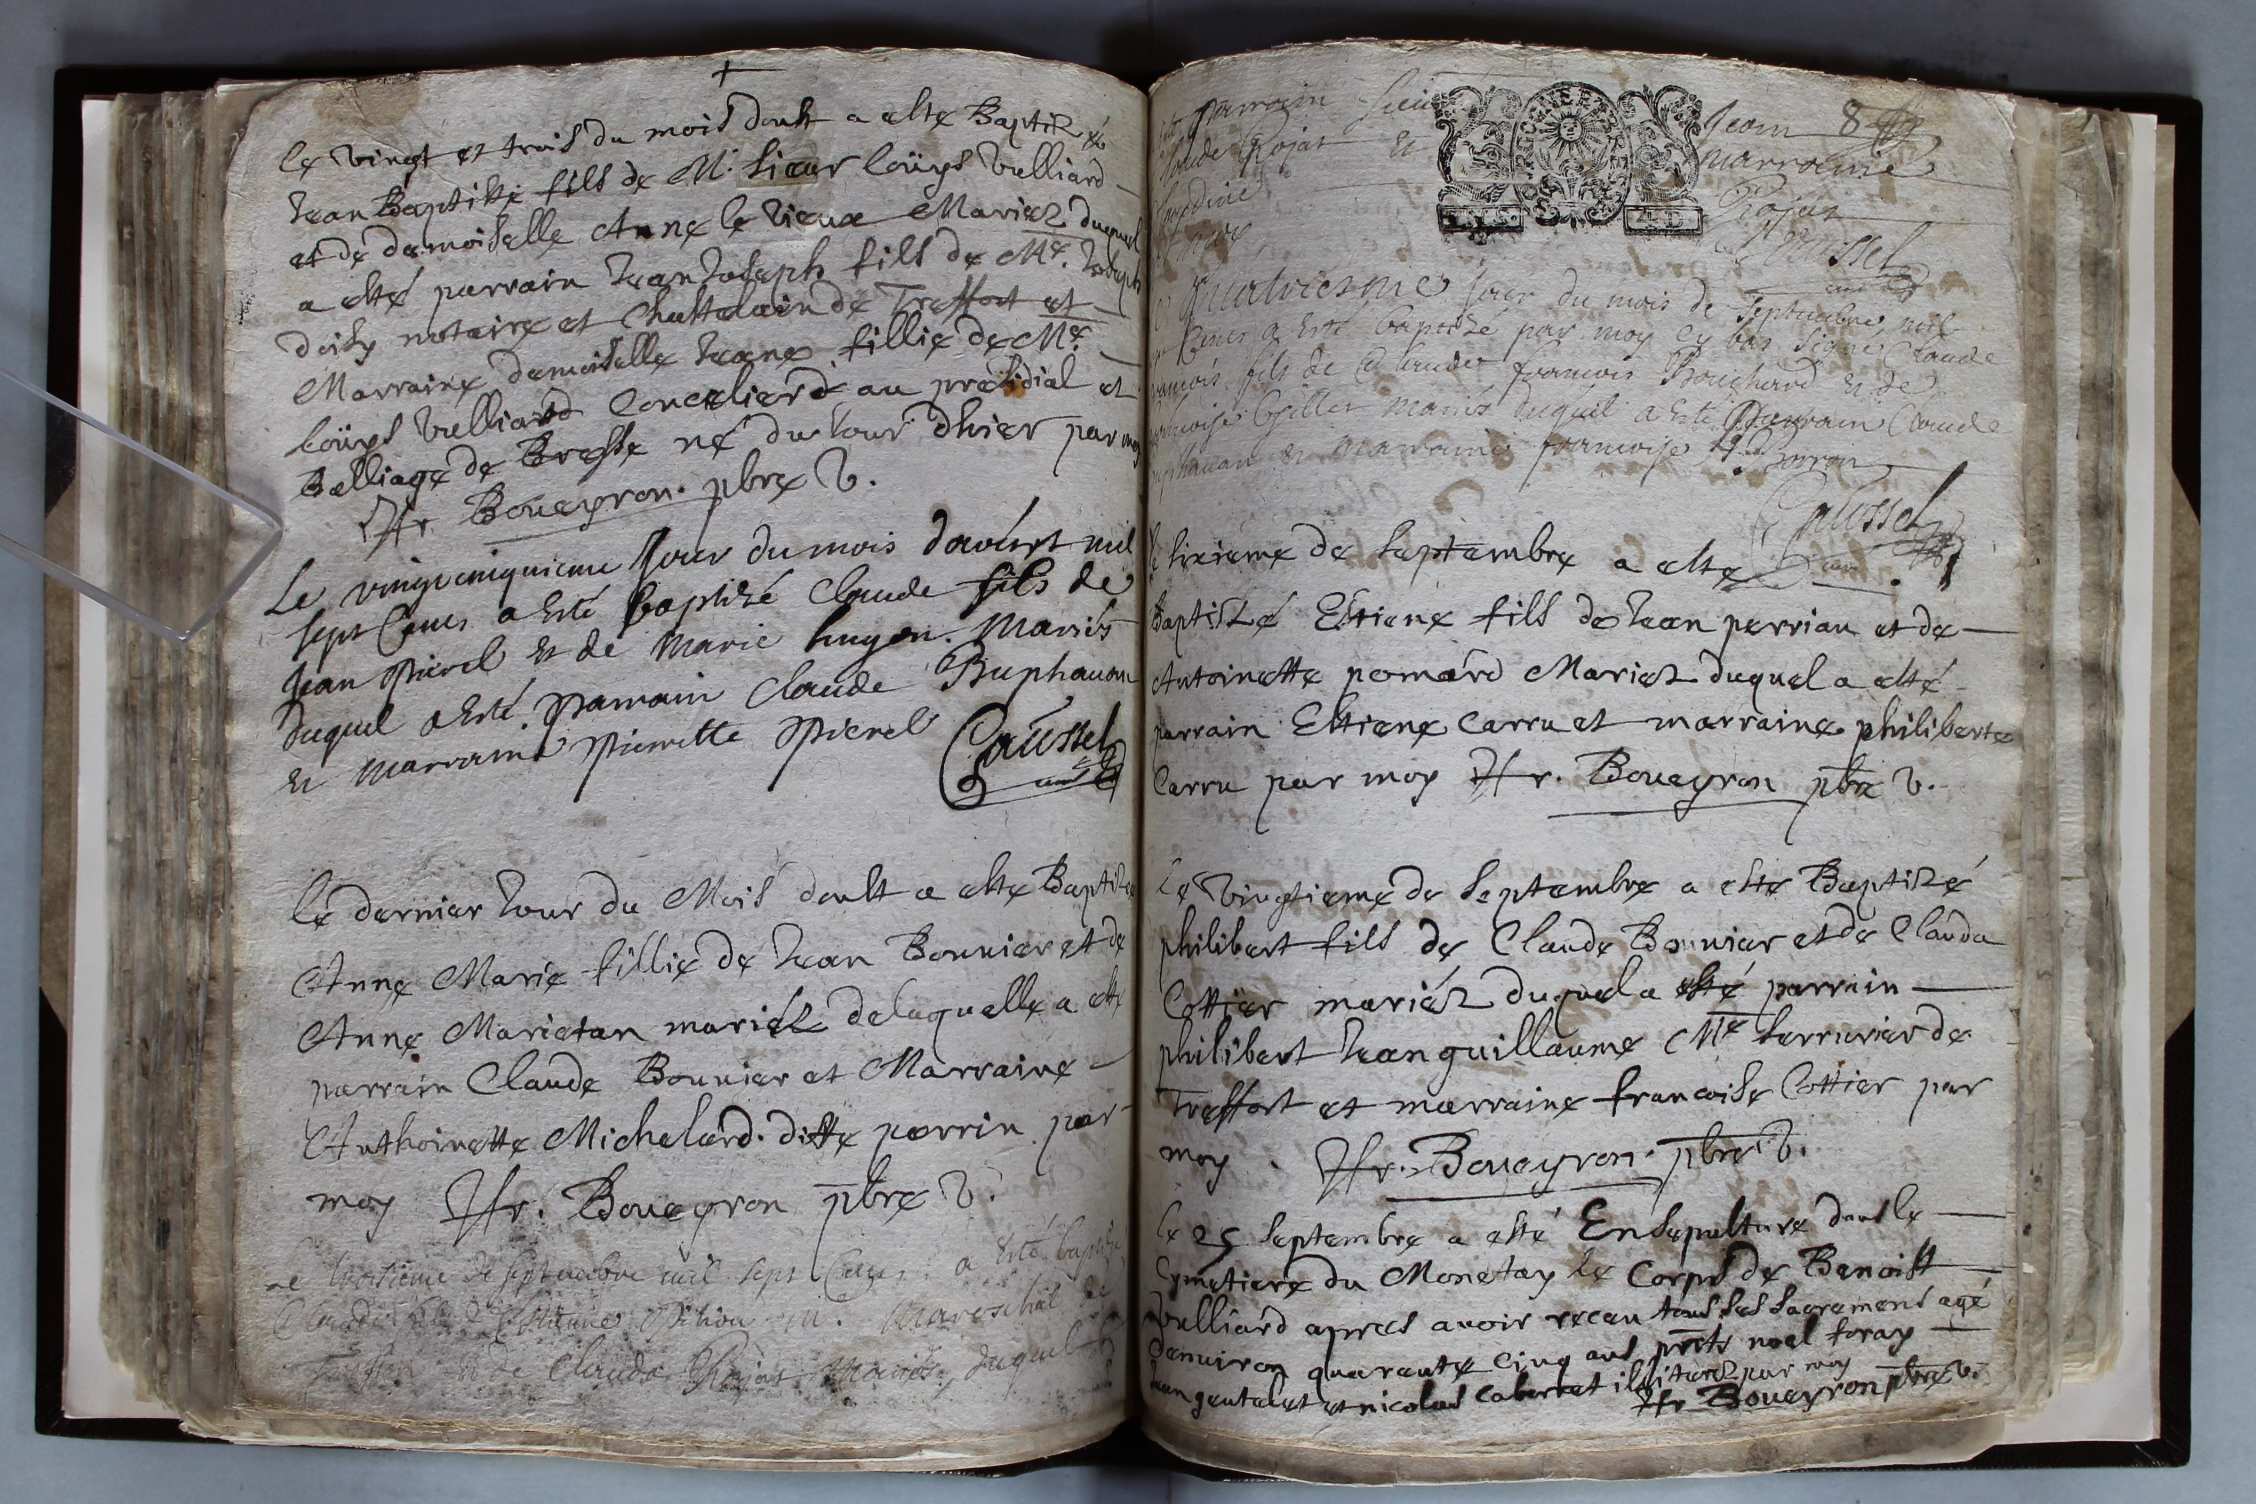 le vingt et trois du mois doult a esté Baptizé
Jean Baptiste fils de Mr. sieur loüys vulliard
et de damoiselle Anne le vieux Mariez duquel
a esté parrain Jean Joseph fils de Me. Joseph
notaire et Chattelain de Treffort et
Marraine damoiselle Jeane fillie de Me.
loüys vulliard Concelierd au presidial et
Belliage de Bresse né du Jour dhier par moy
Hr. Boueyron. pbre v.
Le vingt cinquieme Jour du mois d'aoust mil
sept Cens a Esté baptizé Claude fils de
Jean Pierel et de Marie hugon. Mariés
duquel a Esté. Parrain Claude Buphauan
et marraine Pierrette Pierel
Caussel
curé
le dernier Jour du Mois doult a esté Baptizée
Anne Marie fillie de Jean Bonnier et de
Anne Marietan mariéz delaquelle a esté
parrain Claude Bonnier et Marraine
Anthoinette Michelard. ditte perrin par
moy Hr. Boueyron pbre v.
Le troisieme de septembre mil sept Cens. a Esté baptizé
Claude fils Estienne M. Mareschal de
et de Claude Rojat Mariés, duquel
parrain Jean 8
Claude Rojat et marraine
Claudine Rojat
Caussel
curé
quatriesme jour du mois de septembre, mil
Cens a Esté baptizé par moy cy bas signé Claude
francois fils de Claude francois Bouchard et de
francoise Gillet mariés duquel a Esté Parrain Claude
Buphauan et marraine francoise
Caussel
curé
le sixieme de septembre a esté
Baptizé Estiene fils de Jean perrian et de
Antoinette pomard Mariez duquel a esté
parrain Estiene Carru et marraine philiberte
Carru par moy Hr. Boueyron pbre v.
Le vingtieme de septembre a esté Baptizé
philibert fils de Claude Bonnier et de Clauda
Cottier mariéz duquel a esté parrain
philibert Jean guillaume Me serrurier de
Treffort et marraine francoise Cottier par
moy. Hr. Boueyron. pbre v.
le 25 septembre a esté Ensepulturé dans le
Cymetiere du Monetay le Corps de Benoist
vulliard apres avoir receu tous ses sacremens agé
denuiron quarante cinq ans prèts noel foray
Jean gentelet et nicolas Cabernet illiterez par moy
Hr Boueyron pbre v.